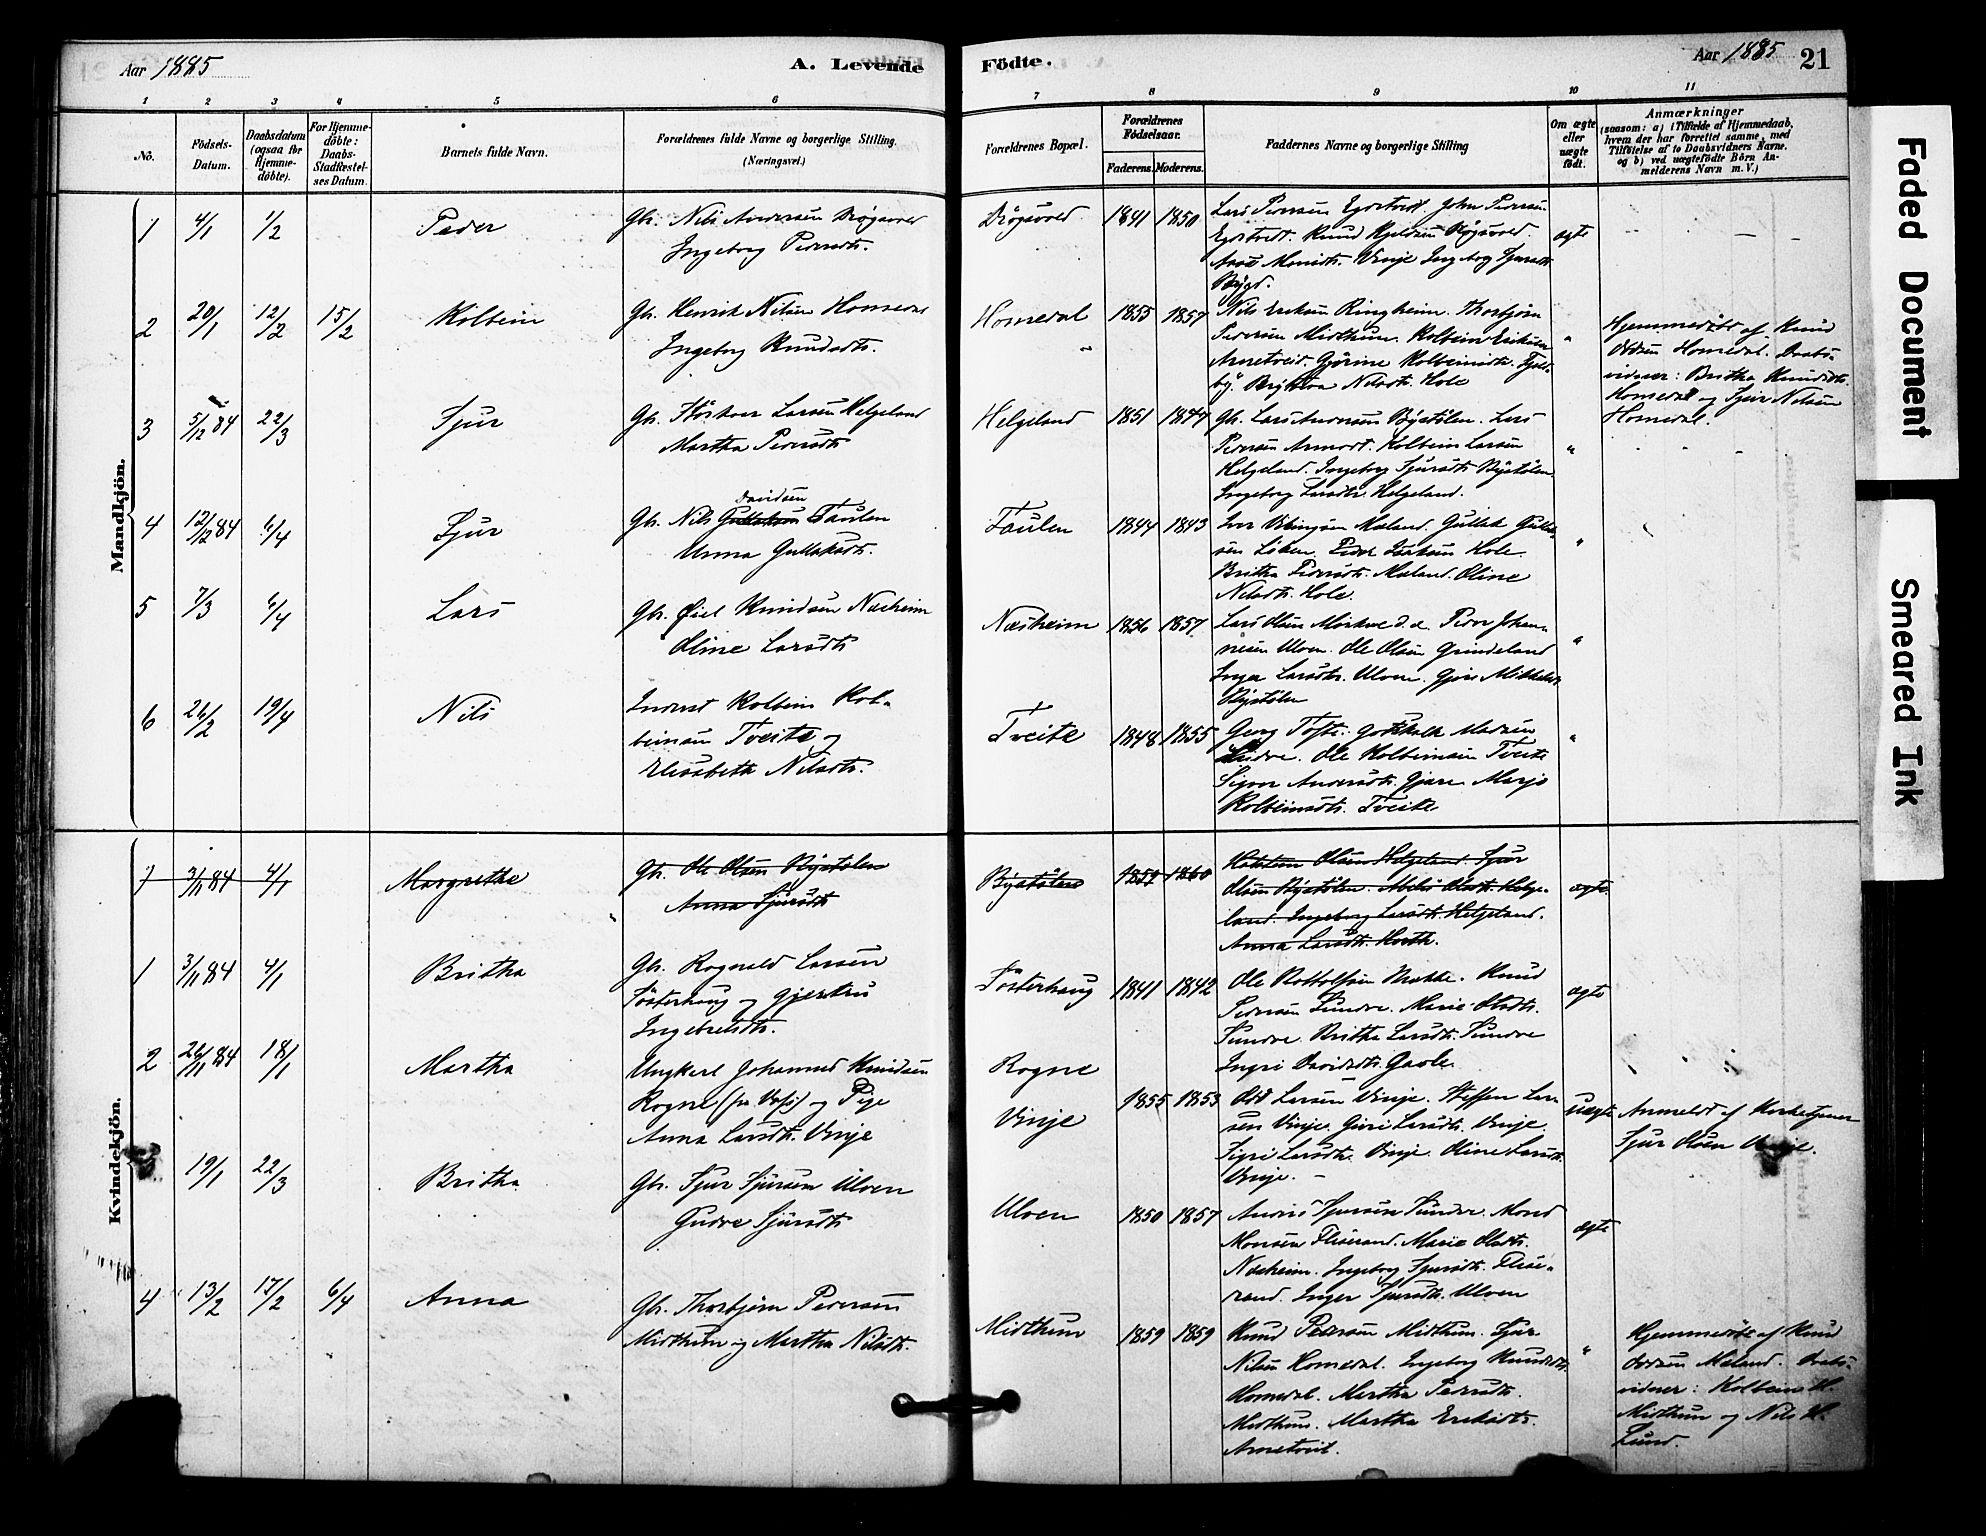 Aar 1885
A. Levende
Födte.
Aar 1885
21
1 2 3 4 5 6 7 8 9 10 11
No.
Födsels-Datum.
Daabsdatum (ogsaa for Hjemme-döbte).
For Hjemme-döbte: Daabs-Stadfæstel-ses Datum.
Barnets fulde Navn.
Forældrenes fulde Navne og borgerlige Stilling.
(Næringsvei.)
Forældrenes Bopæl.
Forældrenes Födselsaar.
Faderens. Moderens.
Faddernes Navne og borgerlige Stilling
Om ægte eller uægte födt.
Anmærkninger
(saasom: a) i Tilfælde af Hjemmedaab, hvem der har forrettet samme, med Tilföielse af to Daabsvidners Navne. og b) ved uægtefödte Börn An-melderens Navn m. V.)
Mandkjön.
1 4/1 1/2 Peder
Gbr. Nils Andersen
Ingeborg Pedersdtr.
1841 1850
Lars Pedersen Egdetveit. John Pedersen
Egdetveit. Knud
Vinje Ingeborg Sjursdtr.
Bygd.
ægte
2 20/1 12/2 15/2 Kolbein
Gbr. Henrik Nilsen Homedal
Ingeborg Knudsdtr.
Homedal 1855 1857
Nils Eriksen Ringheim. Thorbjörn
Pedersen Midthun. Kolbein Eriksen
Armetveit. Gjörine Kolbeinsdtr.
Nilsdtr. Hole
"
Hjemmedöbt af Knud
Oddsen Homedal. Daabs-
vidner: Britha Knudsdtr.
Homedal og Sjur Nilsen
Homedal.
3 5/12 84 22/3 Sjur
Gbr. Larsen Helgeland
Martha Pedersdtr.
Helgeland 1851 1847
Gbr. Lars Andersen Bystölen. Lars
Pedersen Armodt. Kolbein Larsen
Helgeland. Ingeborg Sjursdtr. Bystölen
Ingeborg Larsdtr. Helgeland.
"
4 12/12 84 6/4 Sjur
Davidsen
Gbr. Nils Gullaksen Taulen
Unna Gullaksdtr.
Taulen 1844 1843
Iver Vikingsen Mæland. Gullak Gullak-
sen Löken. Peder Isaksen Hole.
Britha Pedersdtr. Mæland. Oline
Nilsdtr. Hole.
"
5 7/3 6/4 Lars
Gbr. Knudsen Næsheim
Oline Larsdtr
Næsheim 1856 1857
Lars Olsen Mörkve d.æ. Peder Johan-
nesen Ulven. Ole Olsen Grindeland
Inger Larsdtr. Ulven. Gjöri Mikkelsdtr.
Bystölen
"
6 26/2 19/4 Nils
Inderst Kolbein Kol-
beinsen Tveite og
Elisabeth Nilsdtr.
Tveite 1848 1855
Georg Tofte. Gotskalk Madsen
Sundve. Ole Kolbeinsen Tveite
Signe Andersdtr. Gjære. Marje
Kolbeinsdtr. Tveite
"
Kvindekjön.
1 3/11 84 4/1 Margrethe
Gbr. Ole Olsen Bystölen
Anna Sjursdtr
Bystölen 1859 1860
Kolbein Olsen Helgeland. Sjur
Olsen Bystölen. Olsdtr. Helge-
land. Ingeborg Larsdtr. Helgeland.
Anna Larsdtr. Horth.
ægte
1 3/11 84 4/1 Britha
Gbr. Rognald Larsen
Tösterhaug og Gjertru
Ingebretsdtr.
Tösterhaug 1841 1842
Ole Rottolfsen Mokke. Knud
Pedersen Sundve. Marie Olsdtr.
Sundve. Britha Larsdtr. Sundve
Ingri Davidsdtr. Gavle.
ægte
2 26/11 84 18/1 Martha
Ungkarl Johannes Knudsen
Rogne (fra Voss) og Pige
Anna Larsdtr. Vinje
Rogne
Vinje
1855 1853
Odd Larsen Vinje. Steffen Lar-
sen Vinje. Guri Larsdtr. Vinje.
Sigri Larsdtr. Vinje. Oline Larsdtr.
Vinje. -
uægte
Anmeldt af Kirketjener
Sjur Olsen Vinje.
19/1 22/3 Britha
Gbr. Sjur Sjursen Ulven
Gudve Sjursdtr
Ulven 1850 1857
Anders Sjursen Sundve. Mons
Monsen Flisrand. Marie Olsdtr.
Næsheim. Ingeborg Sjursdtr. Flis-
rand. Inger Sjursdtr. Ulven
ægte
4 13/2 17/2 6/4 Anna
Gbr. Thorbjörn Pedersen
Midthun og Martha Nilsdtr.
Midthun 1859 1859
Knud Pedersen Midthun. Sjur
Nilsen Homedal. Ingeborg Knudsdtr.
Homedal. Martha Pedersdtr.
Midthun. Martha Eriksdtr.
Armetveit.
"
Hjemmedöbt af Knud
Oddsen Mæland. Daabs-
vidner: Kolbein H.
Midthun og Nils H.
Lund.
Faded Document
Smeared Ink